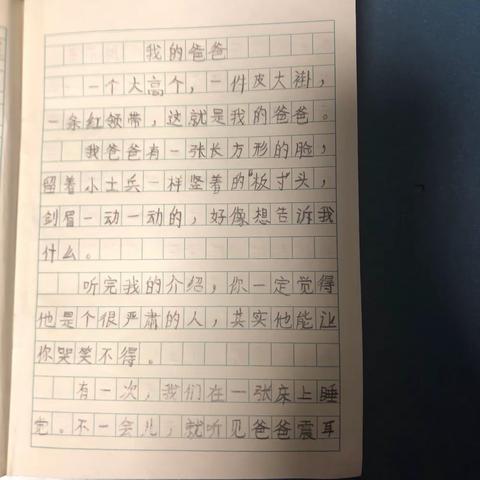 我的爸爸
一个大高个，一件皮大褂，
一条红领带，这就是我的爸爸。
我爸爸有一张长方形的脸，
留着小士兵一样竖着的"板寸"头，
剑眉一动一动的，好像想告诉我
什么。
听完我的介绍，你一定觉得
他是个很严肃的人，其实他能让
你哭笑不得。
有一次，我们在一张床上睡
觉。不一会儿，就听见爸爸震耳